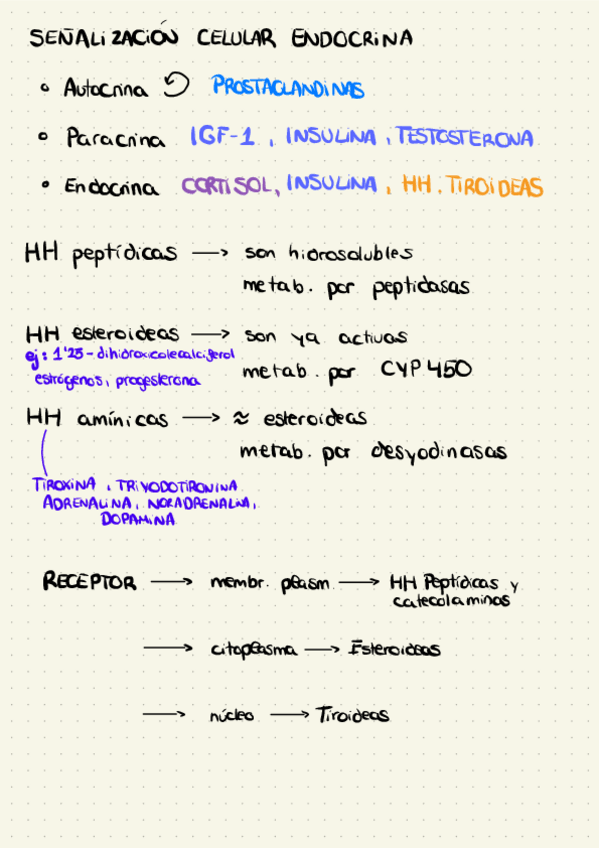 SEÑALIZACIÓN CELULAR ENDOCRINA
Autocrina PROSTAGLANDINAS
Paracrina IGF-1, INSULINA, TESTOSTERONA
Endocrina CORTISOL, INSULINA, HH. TIROIDEAS
HH peptídicas → son hidrosolubles
metab. por peptidasas
HH esteroideas → son ya activas
ej: 1'25-dihidroxicolecalciferol
estrógenos, progesterona
metab. por CYP450
HH amínicas → ≈ esteroideas
metab. por desyodinasas
TIROXINA, TRIYODOTIRONINA
ADRENALINA, NORADRENALINA,
DOPAMINA
RECEPTOR → membr. plasm. → HH Peptídicas y
catecolaminas
→ citoplasma → Esteroideas
→ núcleo → Tiroideas